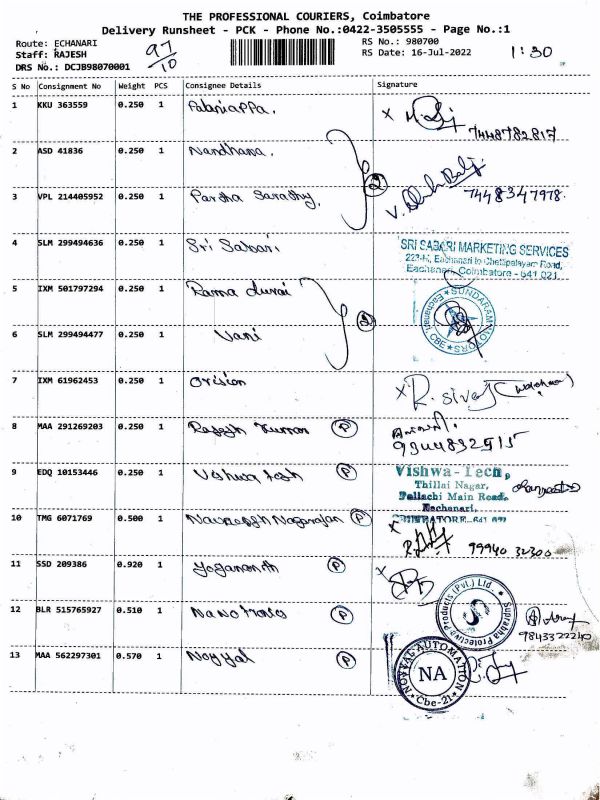 THE PROFESSIONAL COURIERS, Coimbatore
Delivery Runsheet - PCK - Phone No.:0422-3505555 - Page No.:1
Route: ECHANARI
Staff: RAJESH
DRS No.: DCJB98070001
97/10
RS No.: 980700
RS Date: 16-Jul-2022
1:30
S No Consignment No Weight PCS Consignee Details Signature
1 KKU 363559 0.250 1 7448782817
2 ASD 41836 0.250 1 Nandhana.
2
3 VPL 214405952 0.250 1 Partha Sarathy. 7448347978.
4 SLM 299494636 0.250 1 Sri Sabari.
SRI SABARI MARKETING SERVICES
Eachanari to Chettipalayam Road,
Eachanari, Coimbatore - 641 021.
5 IXM 501797294 0.250 1 Rama durai
SUNDARAM MOTORS Eachanari CBE
2
6 SLM 299494477 0.250 1 Vani
7 IXM 61962453 0.250 1 Orision R. siva
8 MAA 291269203 0.250 1 Rajesh Kumar P
9944832515
9 EDQ 10153446 0.250 1 Vishwa Tesh P
Vishwa-Tech,
Thillai Nagar,
Pollachi Main Road,
Eachanari,
COIMBATORE-641 021
10 TMG 6071769 0.500 1 Nagarajan P 99940 32300
11 SSD 209386 0.920 1 Yogananth P
Suprabha Protective Products (Pvt.) Ltd.
12 BLR 515765927 0.510 1 P 9843322240
13 MAA 562297301 0.570 1 Noyyal P
NOYYAL AUTOMATION NA Cbe-21